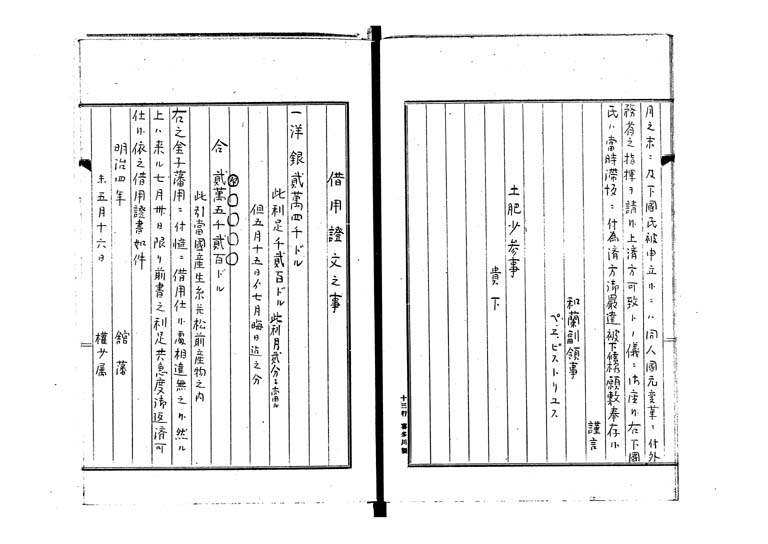 月之末ニ及下國氏被申立小ニハ同人國元変革ニ付外
務省之指揮ヲ請小上済方可致トノ儀ニ御座小右下國
氏ハ當時滞坂ニ付為済方御嚴達被下度願敷奉存小
謹言
和蘭副領事
ペ、エ、ピストリュス
土肥少参事
貴下
十三行 喜多川製
借用證文之事
一洋銀貳萬四千ドル
此利足千貳百ドル 此利月貳分ニ當ル
但五月十五日ゟ七月晦日迄之分
合貳萬五千貳百ドル
此引當國産生糸并松前産物之内
右之金子藩用ニ付慥ニ借用仕小處相違無之小然ル
上ハ来ル七月卅日限リ前書之利足共急度御返済可
仕小依之借用證書如件
明治四年 舘藩
未五月十六日 權少属